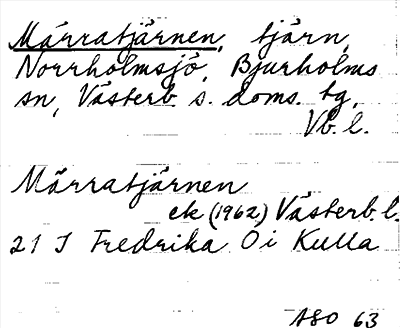 Märratjärnen, tjärn,
Norrholmsjö, Bjurholms
sn, Västerb. s. doms. tg,
Vb. l.
Märratjärnen
ek (1962) Västerb. l.
21 J Fredrika 0 i Kulla
ASO 63